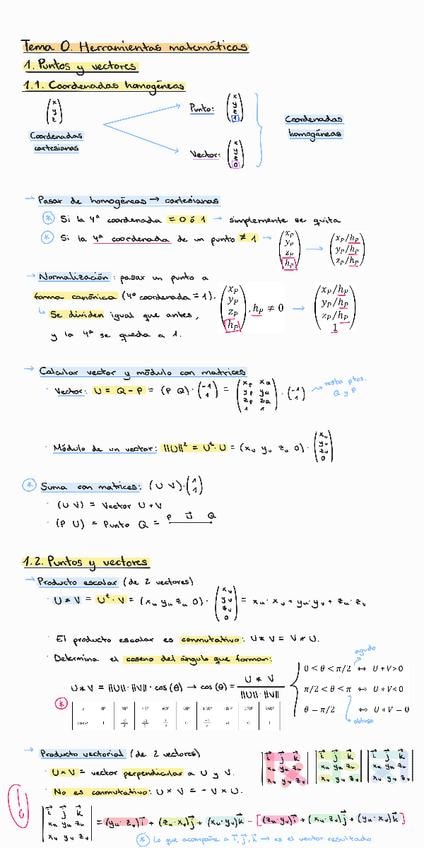 Tema 0. Herramientas matemáticas
1. Puntos y vectores
1.1. Coordenadas homogéneas
Coordenadas cartesianas
Punto:
Vector:
Coordenadas homogéneas
→ Pasar de homogéneas → cartesianas
* Si la 4ª coordenada = 0 ó 1 → simplemente se quita
* Si la 4ª coordenada de un punto ≠ 1 → (x_p y_p z_p h_p) → (x_p/h_p y_p/h_p z_p/h_p)
→ Normalización: pasar un punto a
forma canónica (4ª coordenada = 1). (x_p y_p z_p h_p), h_p ≠ 0 → (x_p/h_p y_p/h_p z_p/h_p 1)
↳ Se dividen igual que antes,
y la 4ª se queda a 1.
→ Calcular vector y módulo con matrices
· Vector: U = Q - P = (P Q) · (-1 1) = (x_p x_q y_p y_q z_p z_q 1 1) · (-1 1) → resta ptos. Q y P
· Módulo de un vector: ||U||² = Uᵗ · U = (x_u y_u z_u 0) · (x_u y_u z_u 0)
* Suma con matrices: (U V) · (1 1)
· (U V) = Vector U + V
· (P U) = Punto Q = P U Q
1.2. Puntos y vectores
→ Producto escalar (de 2 vectores)
· U * V = Uᵗ · V = (x_u y_u z_u 0) · (x_v y_v z_v 0) = x_u · x_v + y_u · y_v + z_u · z_v
· El producto escalar es conmutativo: U * V = V * U.
· Determina el coseno del ángulo que forman:
U * V = ||U|| · ||V|| · cos(θ) → cos(θ) = U * V / ||U|| · ||V||
agudo
0 < θ < π/2 ↔ U * V > 0
π/2 < θ < π ↔ U * V < 0
θ = π/2 ↔ U * V = 0
obtuso
→ Producto vectorial (de 2 vectores)
· U × V = vector perpendicular a U y V.
· No es conmutativo: U × V = - V × U.
|i j k x_u y_u z_u x_v y_v z_v| = (y_u · z_v)i + (z_u · x_v)j + (x_u · y_v)k - [(z_u · y_v)i + (x_u · z_v)j + (y_u · x_v)k]
* lo que acompaña a i, j, k → es el vector resultado